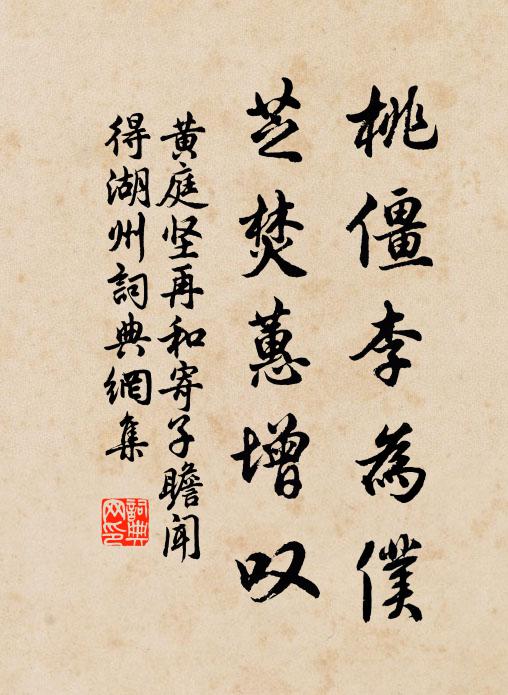 桃僵李為僕
芝焚蕙增叹
黄庭坚再和寄子瞻闻
得湖州詞典網集
詞典
网印